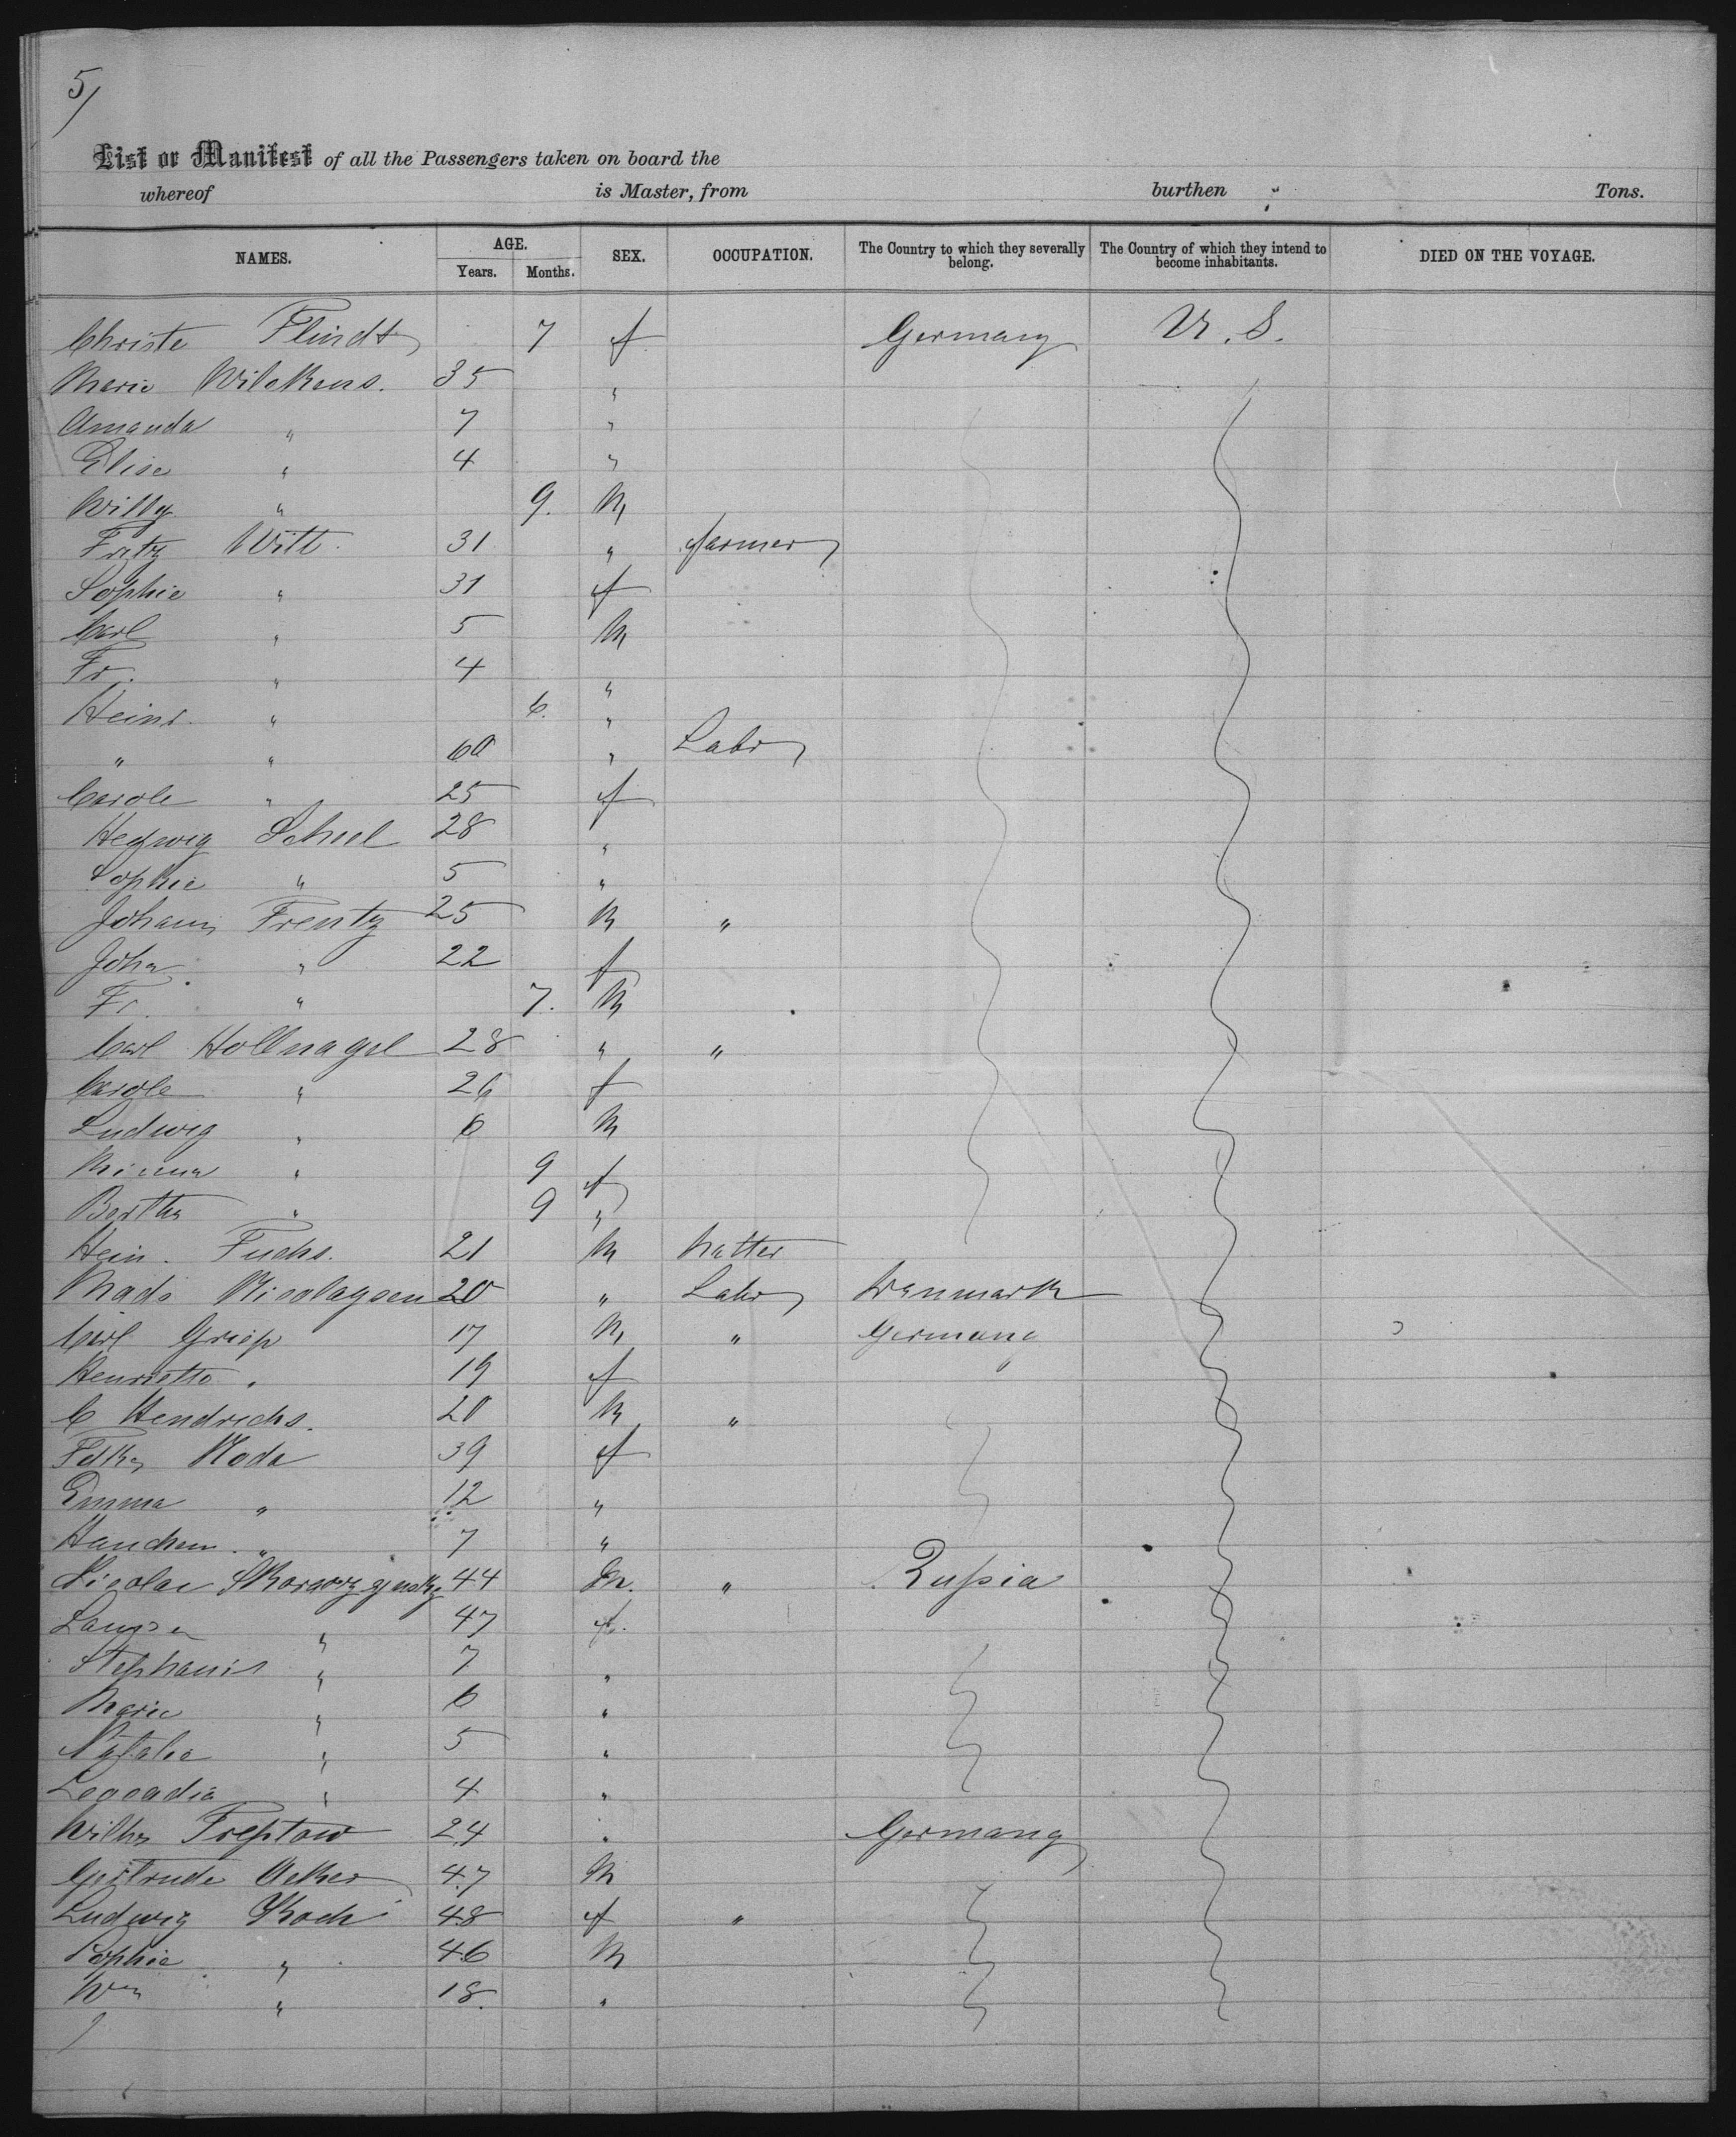 5/
List or Manifest of all the Passengers taken on board the
whereof is Master, from burthen Tons.
NAMES. AGE. Years. Months. SEX. OCCUPATION. The Country to which they severally belong. The Country of which they intend to become inhabitants. DIED ON THE VOYAGE.
Christe Flindt 7 f Germany U. S.
Marie Wilckens. 35 "
Amanda " 7 "
Elise " 4 "
Willy " 9. M
Fritz Witt. 31 " farmer
Sophie " 31 f
Carl " 5 M
Fr. " 4 "
Heinr. " 6. "
" " 60 " Labr
Carole " 25 f
Hegwig Scheel 28 "
Sophie " 5 "
Johann Frentz 25 M "
Joha " 22 f
Fr. " 7. M
Carl Hollnagel 28 " "
Carole " 26 f
Ludwig " 6 M
Minna " 9 f
Bertha " 9 "
Hein. Fuchs. 21 M hatter
Mads Nicolaysen 20 " Labr Denmark
Carl Griep 17 M " Germany
Henriette " 19 f "
C Hendrichs. 20 M "
Noda 39 f
Emma " 12 "
Hanchen " 7 "
Nicolai 44 M. " Russia
" 47 f.
Stephanie " 7 "
Marie " 6 "
Natalie " 5 "
Leocadia " 4 "
Wilh Treptow 24 " Germany
Gertrude Acker 47 M
Ludwig Koch 48 f "
Sophie " 46 M
Wm " 18. "